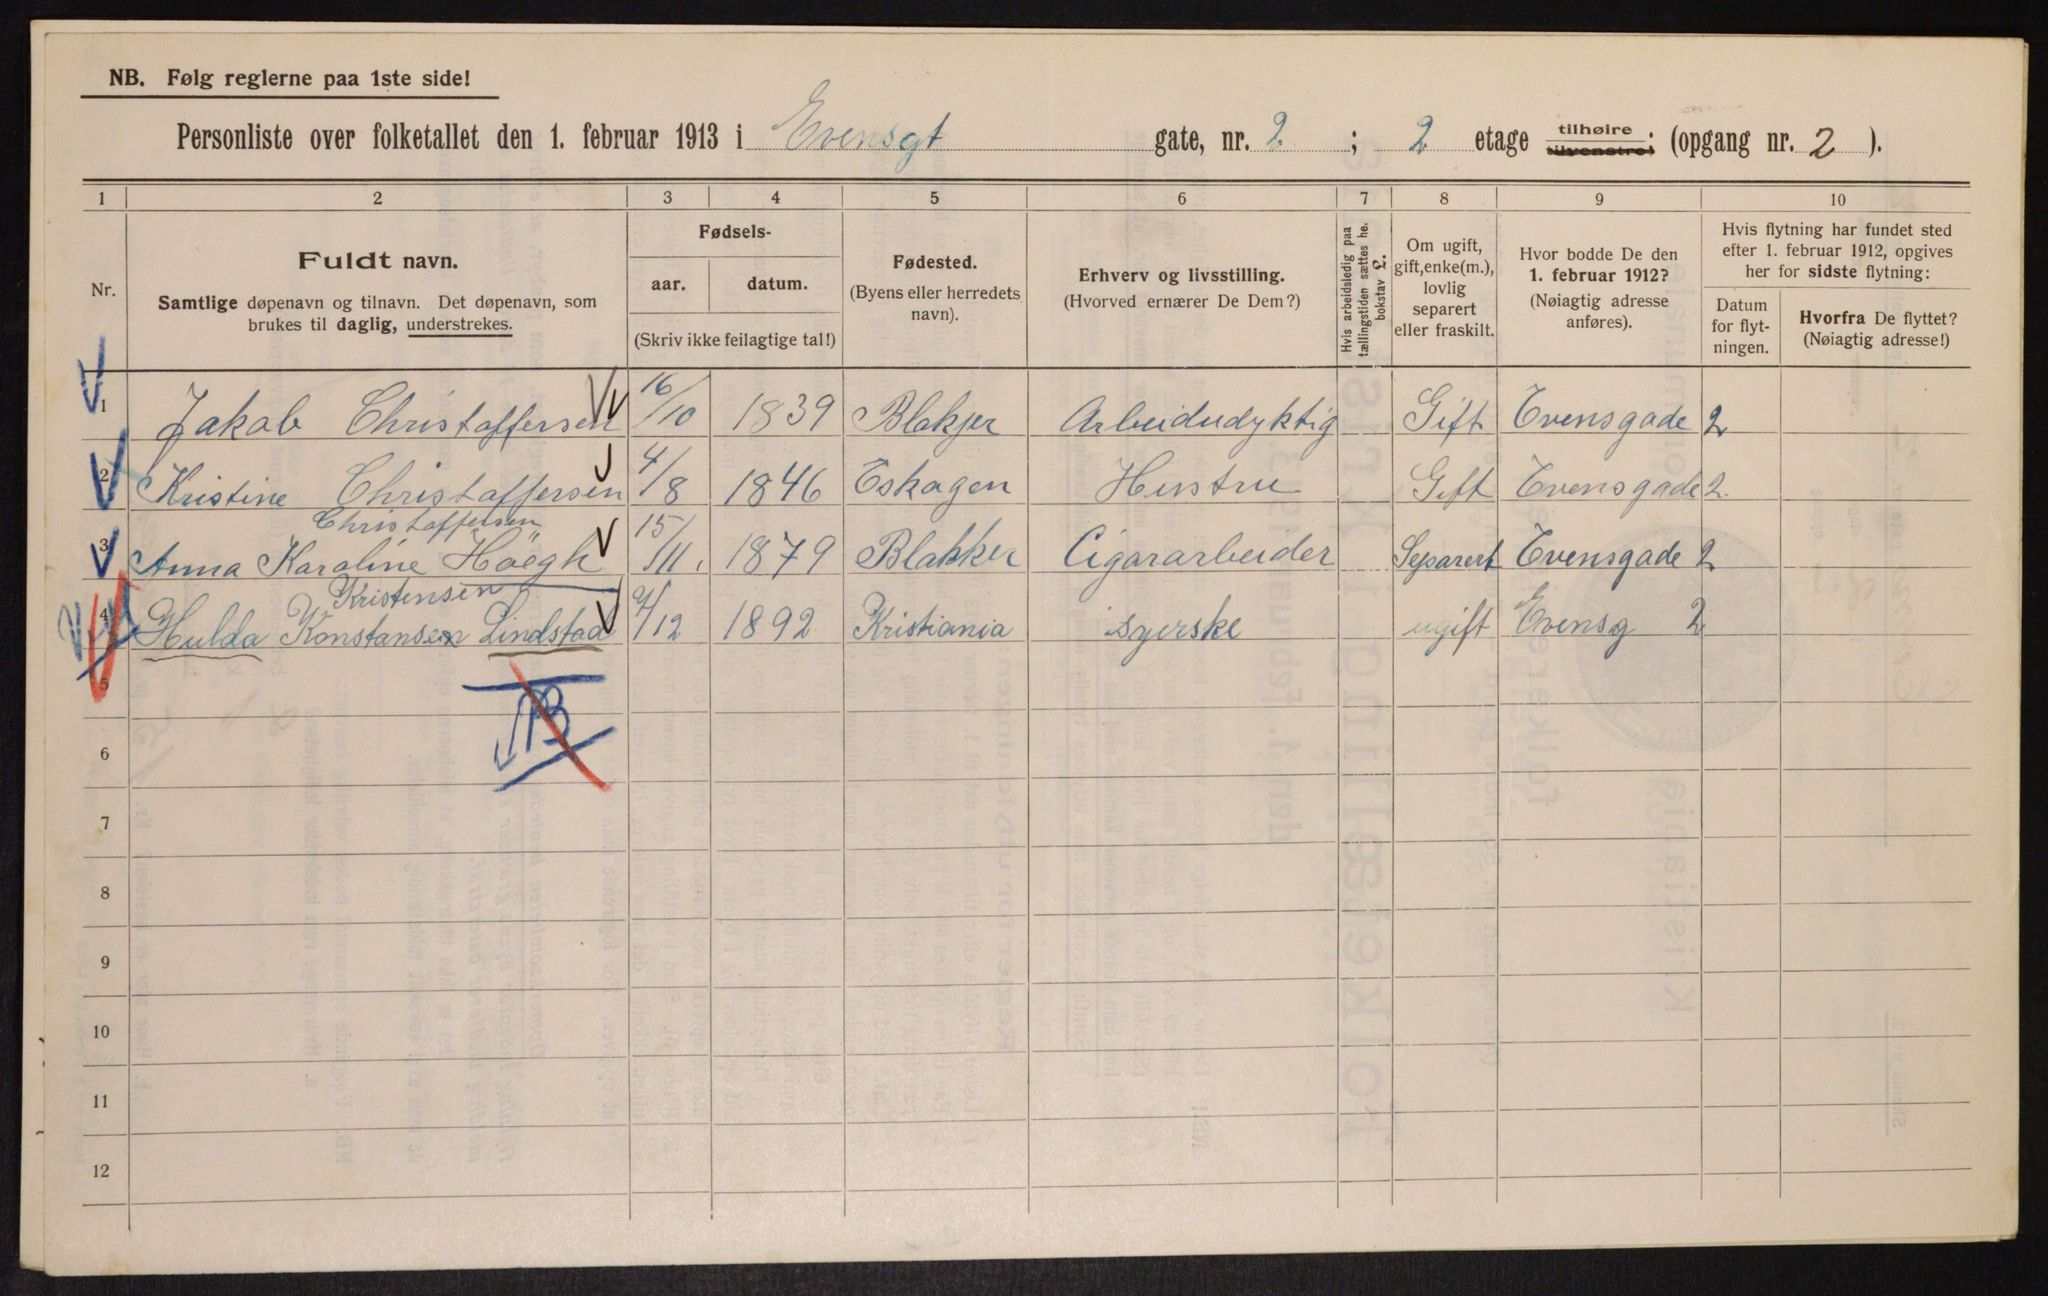 NB. Følg reglerne paa 1ste side!
Personliste over folketallet den 1. februar 1913 i Evensgt gate, nr. 2 ; 2 etage tilhøire tilvenstre; (opgang nr. 2 ).
1 2 3 4 5 6 7 8 9 10
Nr.
Fuldt navn.
Samtlige døpenavn og tilnavn. Det døpenavn, som
brukes til daglig, understrekes.
Fødsels-
aar. datum.
(Skriv ikke feilagtige tal!)
Fødested.
(Byens eller herredets
navn).
Erhverv og livsstilling.
(Hvorved ernærer De Dem?)
Hvis arbeidsledig paa
tællingstiden sættes he.
bokstav L.
Om ugift,
gift, enke(m.),
lovlig
separert
eller fraskilt.
Hvor bodde De den
1. februar 1912?
(Nøiagtig adresse
anføres).
Hvis flytning har fundet sted
efter 1. februar 1912, opgives
her for sidste flytning:
Datum
for flyt-
ningen.
Hvorfra De flyttet?
(Nøiagtig adresse!)
1 Jakob Christoffersen 16/10 1839 Blakjer Arbeidudyktig Gift Evensgade 2
2 Kristine Christoffersen 4/8 1846 Eskogen Hustru Gift Evensgade 2.
Christoffersen
3 Anna Karoline Höegh 15/11. 1879 Blakker Cigararbeider Separert Evensgade 2
Kristensen
4 Hulda Konstansen Lindstad /12 1892 Kristiania syerske ugift Evensg 2
5
NB
6
7
8
9
10
11
12